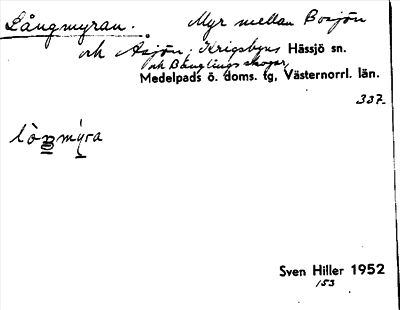 Långmyran. Myr mellan Bosjön
och Åsjön; Krigsbyns Hässjö sn.
och Bänglings skogar
Medelpads ö. doms. tg, Västernorrl. län.
337.
lòŋmýra
Sven Hiller 1952
153